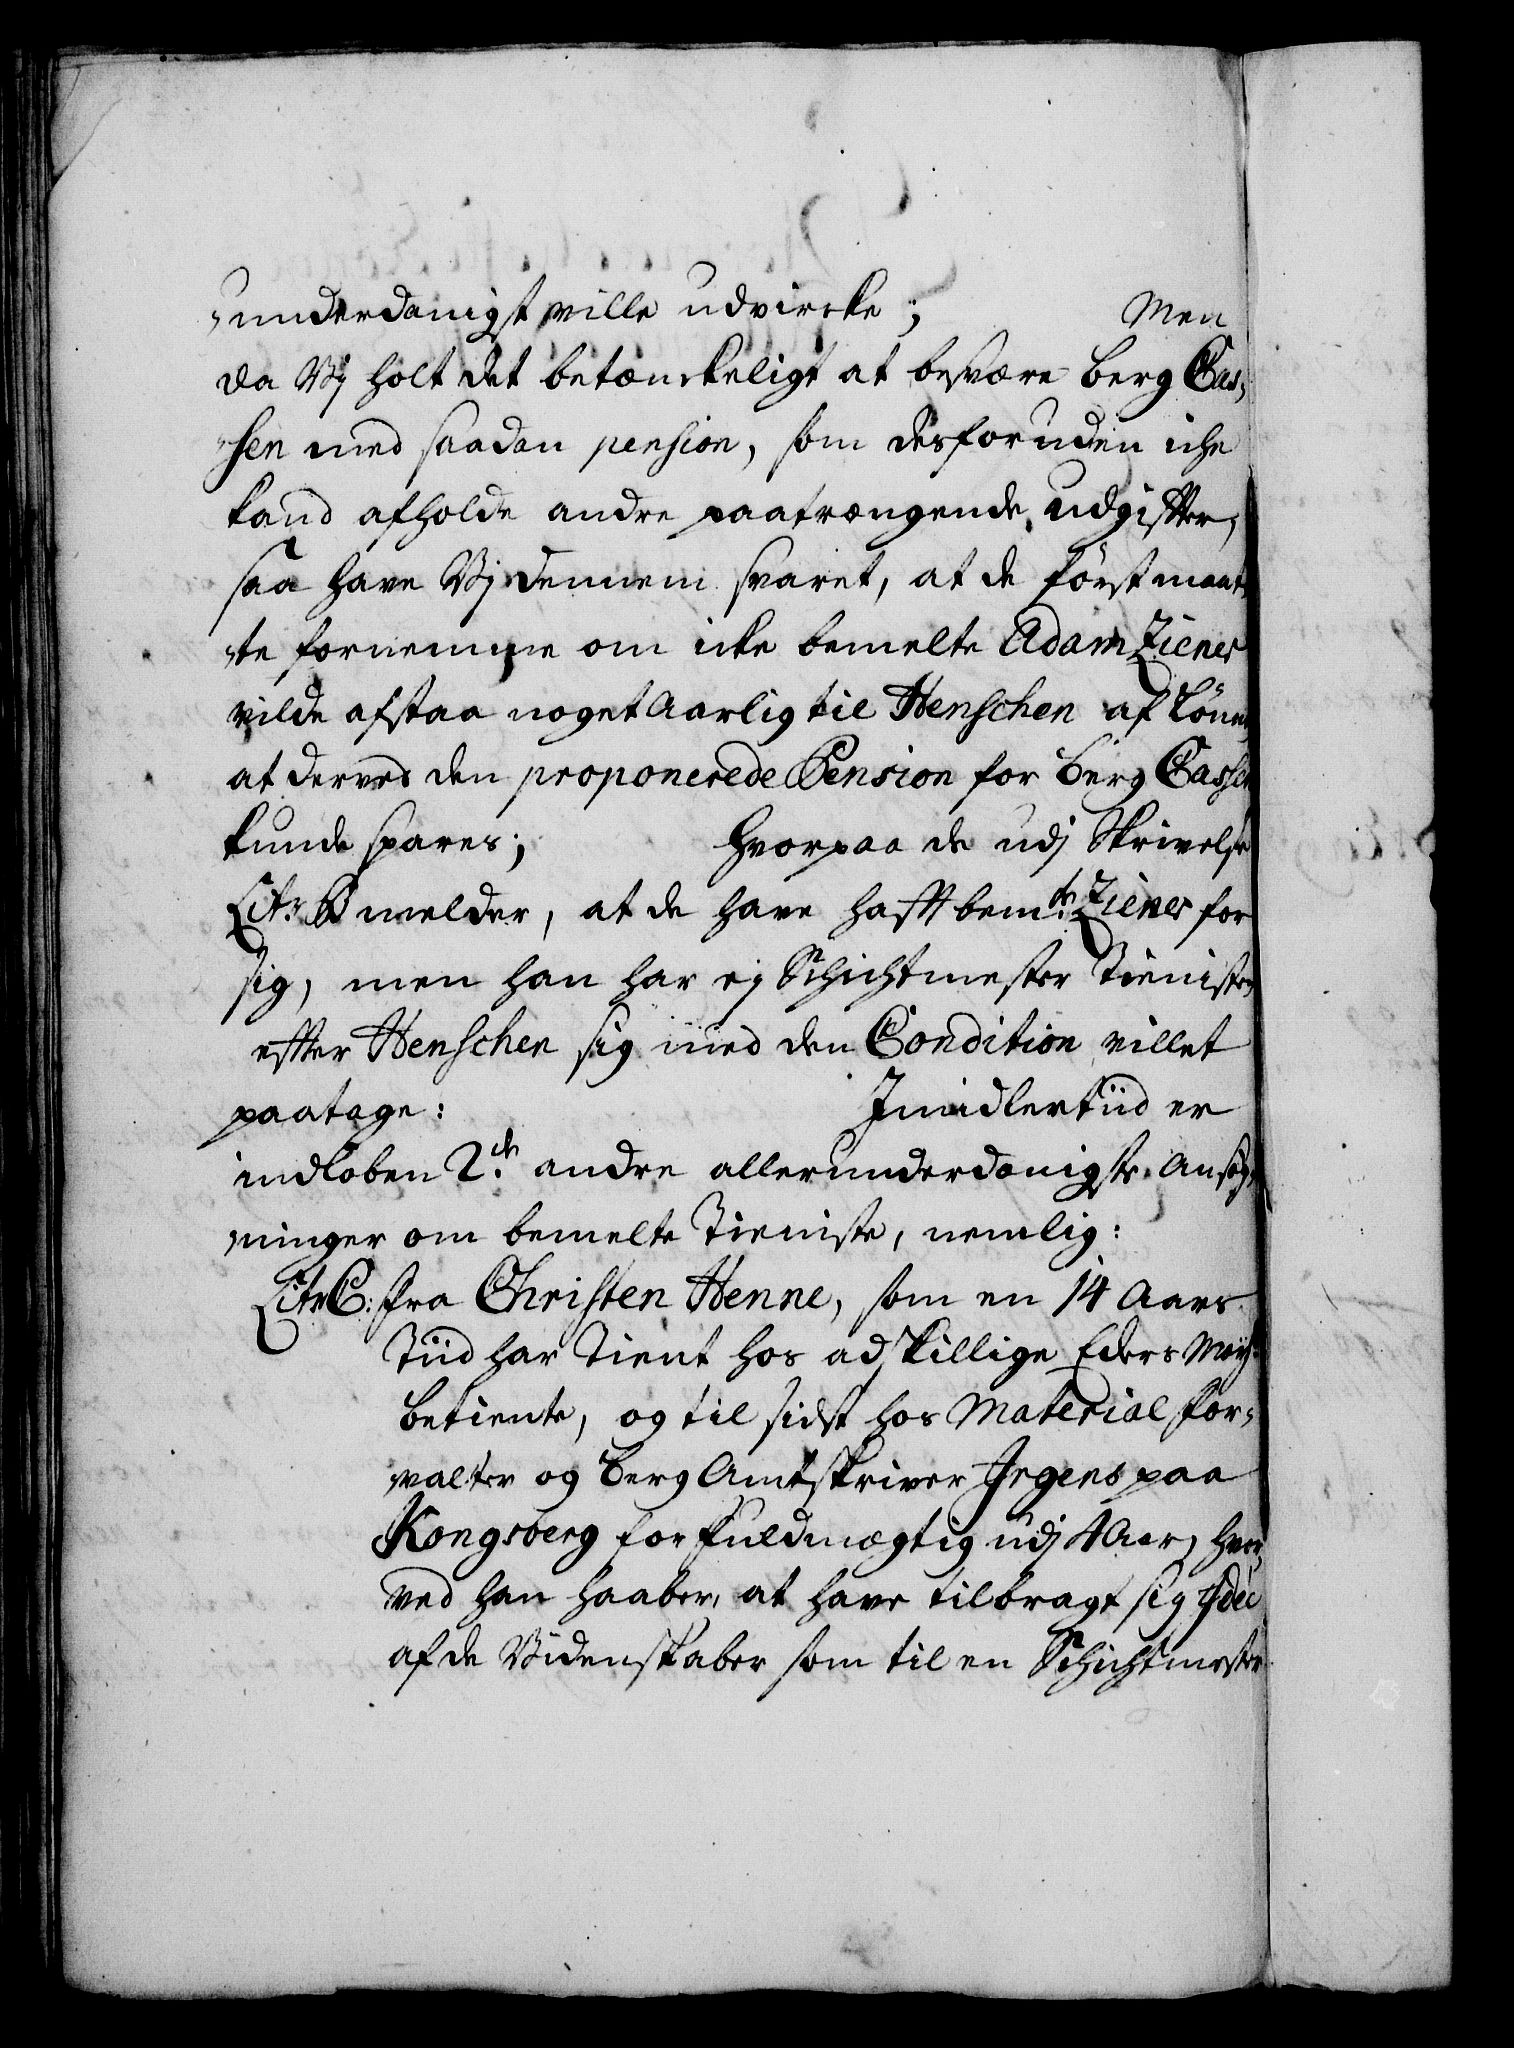 underdanigst ville udvircke; Men
da Vj holt det betænckeligt at besvære Berg Cas-
sen med saadan pension, som desforuden icke
kand afholde andre paatrængende udgiffter,
saa have Vj dennem svaret, at de först maat-
te fornemme om icke bemelte Adam Ziener
vilde afstaa noget Aarlig til Henschen af Lönen
at derved den proponerede Pension for Berg Cassen
kunde spares; Hvorpaa de udj Skrivelse
Litr: B melder, at de have hafft bem.te Ziener for
sig, men han har ej Schichtmester Tieniste,
effter Henschen sig med den Condition villet
paatage: Jmidlertiid er
indloben 2.de andre allerunderdanigste Ansög-
ninger om bemelte Tieniste, nemlig:
Litr C: fra Christen Henne, som en 14 Aars
Tiid har Tient hos adskillige Eders Mayts
betiente, og til sidst hos Material for-
valter og Berg Amtskriver Irgens paa
Kongsberg for fuldmægtig udj 4 Aar, hvor-
ved han haaber, at have tilbragt sig Jdée
af de Videnskaber som til en Schichtmester